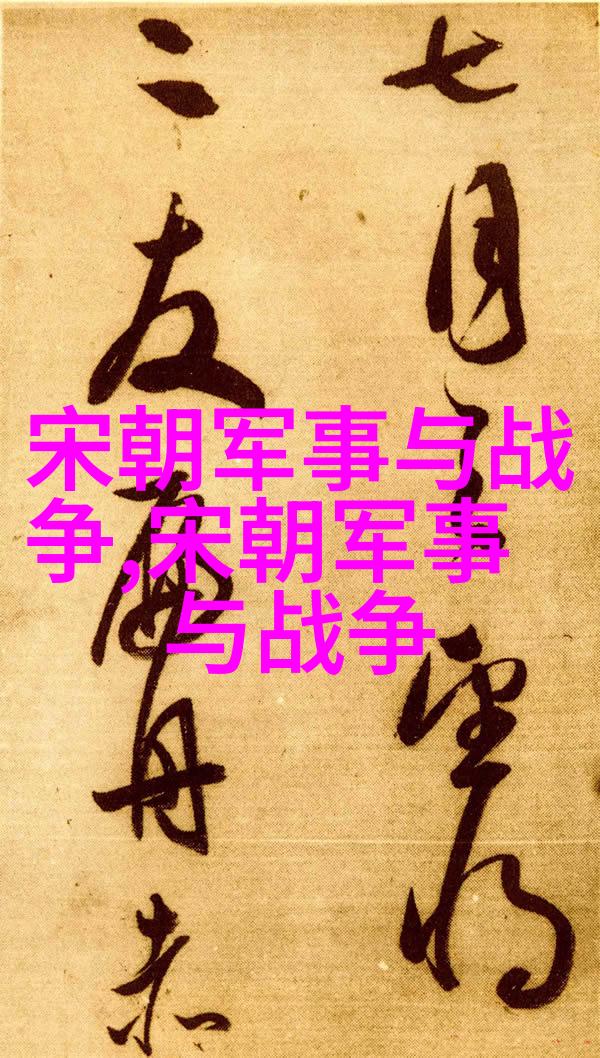 宋朝军事与战
争,宋朝军事
与战争
七月望将
二友扁舟赤